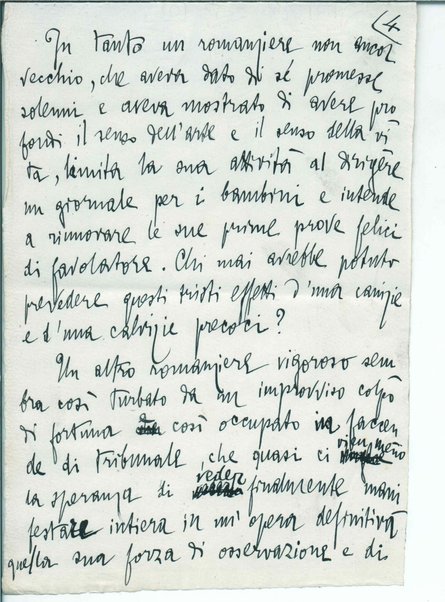 (4
In tanto un romanziere non ancor
vecchio, che aveva dato di sé promesse
solenni e aveva mostrato di avere pro
fondi il senso dell'arte e il senso della vi
ta, limita la sua attività al dirigere
un giornale per i bambini e intende
a rinnovare le sue prime prove felici
di favolatore. Chi mai avrebbe potuto
prevedere questi tristi effetti d'una canizie
e d'una calvizie precoci?
Un altro romanziere vigoroso sem
bra così turbato da un improvviso colpo
di fortuna così occupato in faccen
de di Tribunale che quasi ci vien meno
la speranza di veder finalmente mani
festare intiera in un'opera definitiva
quella sua forza di osservazione e di